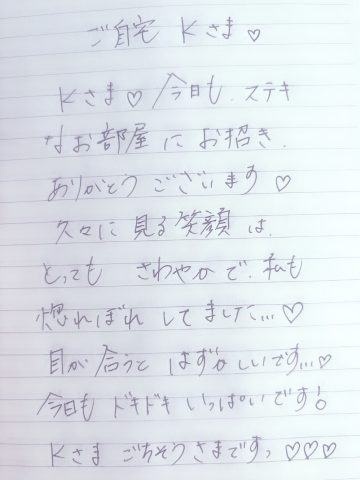 ご自宅 Kさま♡
Kさま♡ 今日も、ステキ
なお部屋に お招き、
ありがとう ございます♡
久々に 見る笑顔 は、
とっても さわやかで、私も
惚れぼれ してました...♡
目が 合うと はずかしいです...♡
今日も ドキドキ いっぱいです!
Kさま ごちそうさまですっ ♡♡♡